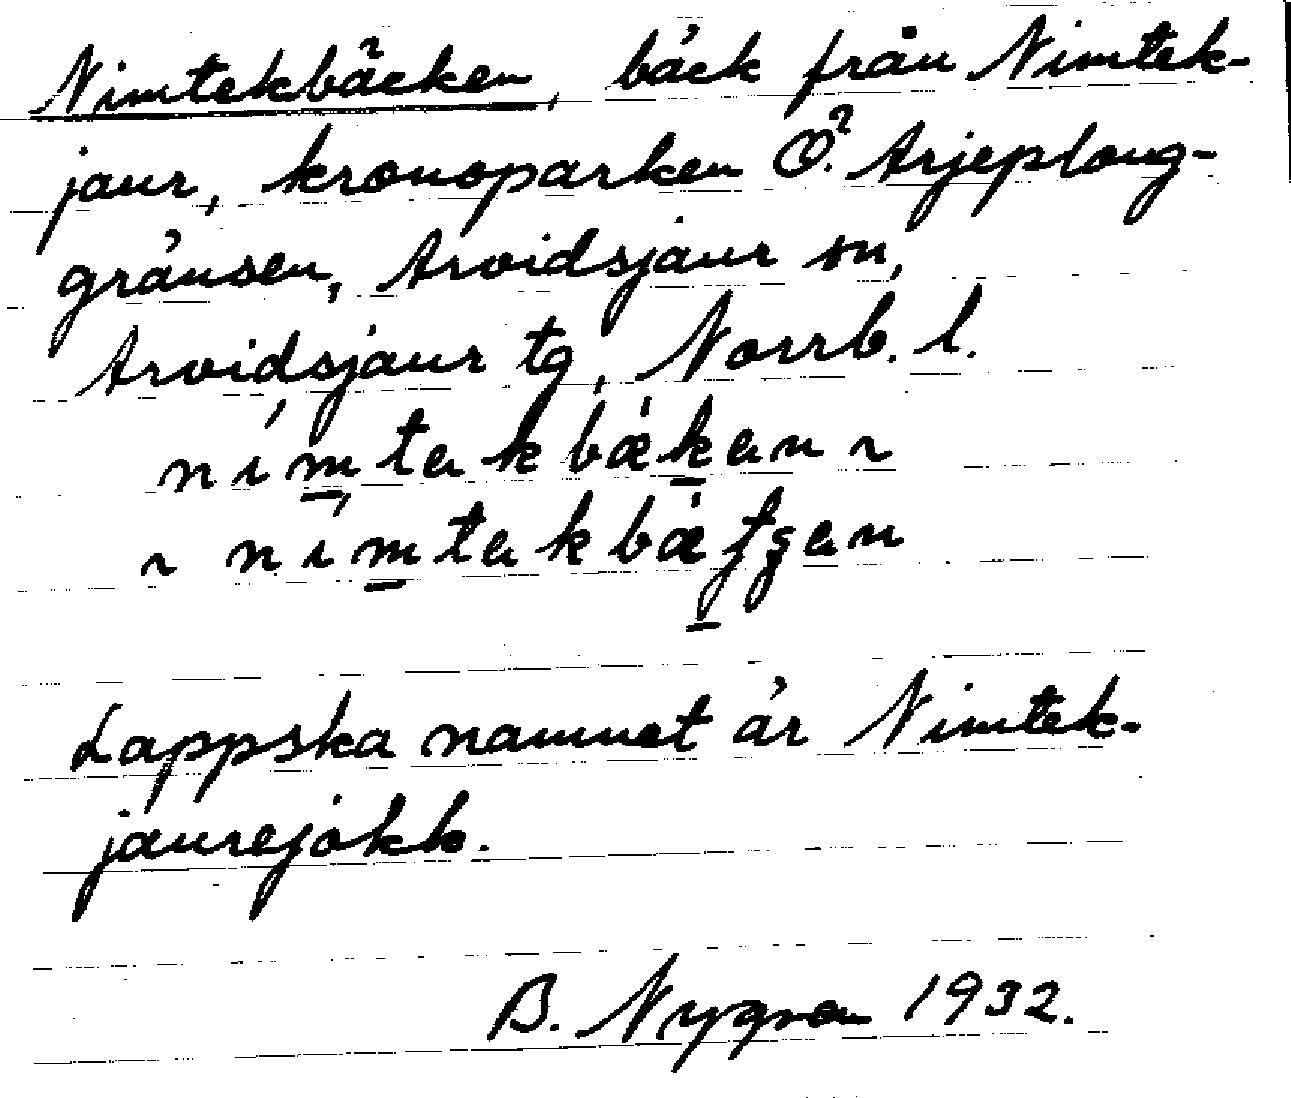 Nimtekbäcken, bäck från Nimtek-
jaur, kronoparken Ö. Arjeploug-
gränsen, Arvidsjaur sn,
Arvidsjaur tg, Norrb. l.
Lappska namnet är Nimtek-
jaurejokk.
B. Nygren 1932.